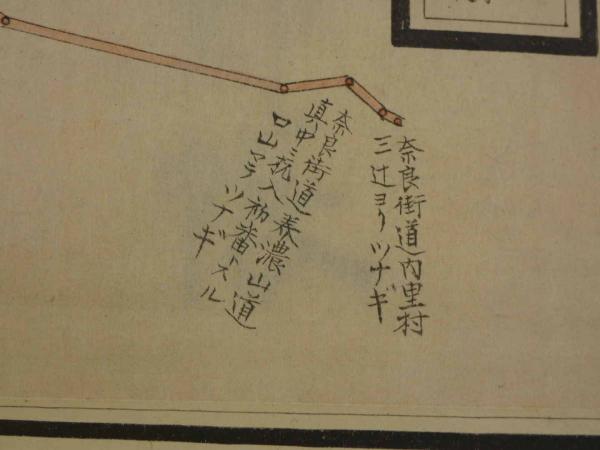 奈良街道内里村
三辻ヨリツナギ
奈良街道美濃山道
真中ニ杭入初番トスル
口山マテツナギ